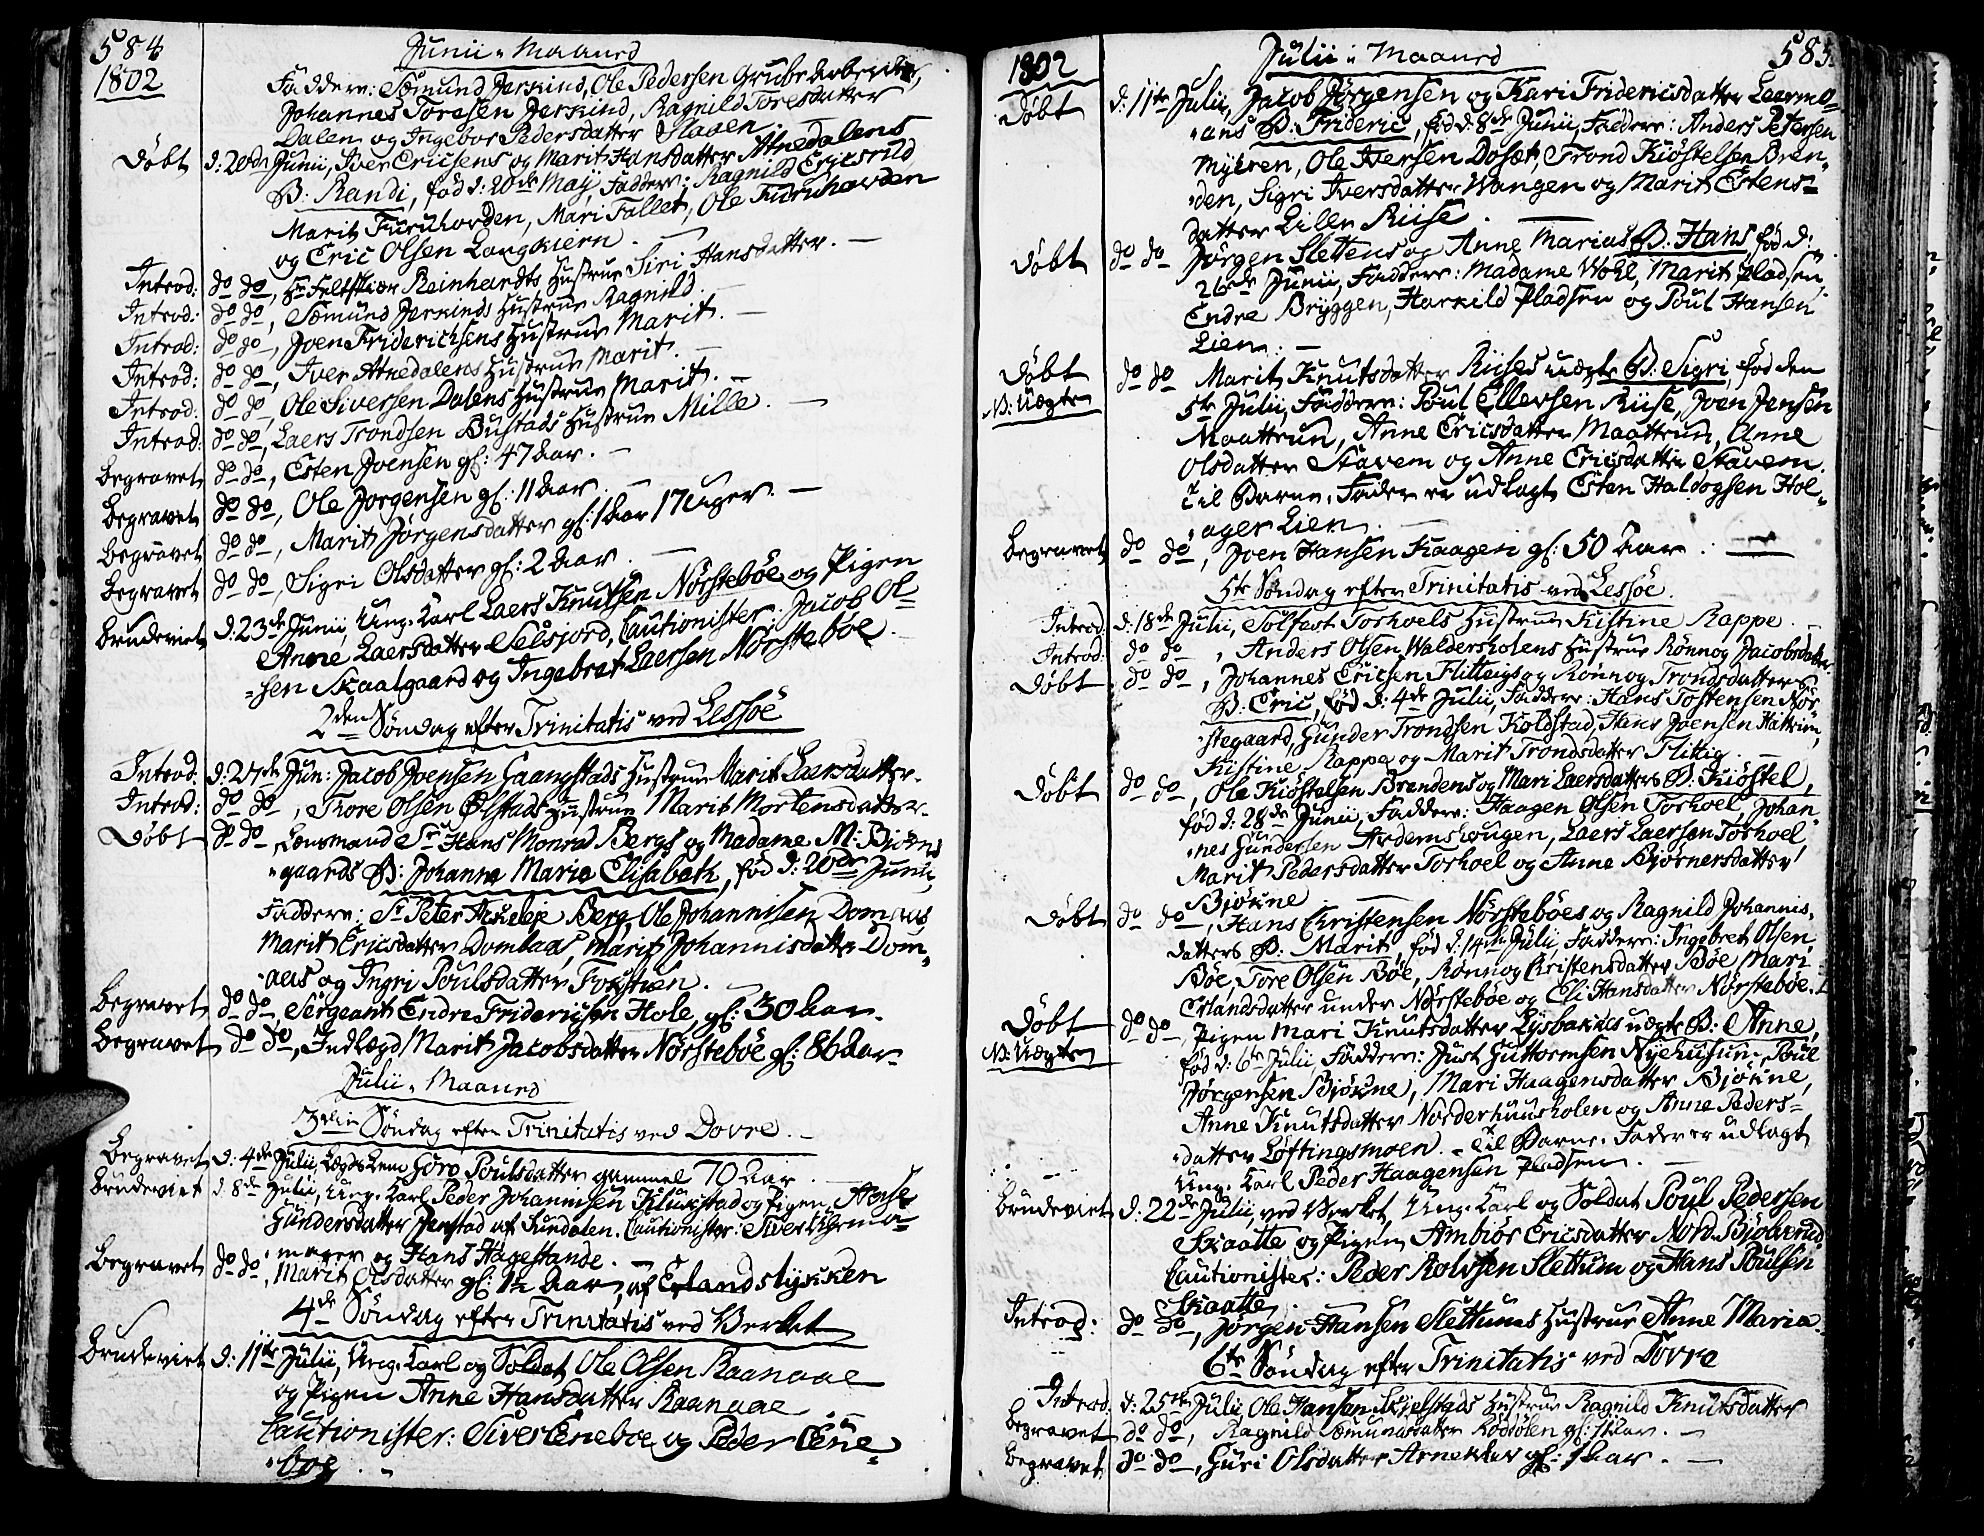 584
1802
Junii Maaned
Faddere: Sæmund Jerkind, Ole Pedersen Grube Arbeider,
Johannes Toresen Jerkind, Ragnild Toresdatter
Dalen og Ingebor Pedersdatter Slaaen.
Døbt d: 20de Junii, Iver Ericsens og Marit Hansdatter Atnedalens
B: Randi, fød d: 20de Maÿ, Faddere: Ragnild
Marit Furuhovden, Mari Fallet, Ole Furuhovden
og Eric Olsen Langkiern.
Introd: do do, Hr Feltskiær Reinhardts Hustrue Siri Hansdatter.
Introd: do do, Sæmund Jerkinds Hustrue Ragnild.
Introd: do do, Joen Friderichsens Hustrue Marit.
Introd: do do, Iver Atnedalens Hustrue Marit.
Introd: do do, Ole Siversen Dalens Hustrue Marit.
Introd: do do, Laers Trondsen Bustads Hustrue Mille.
Begravet do do, Esten Joensen gl: 47 Aar.
Begravet do do, Ole Jorgensen gl: 11 Aar.
Begravet do do, Marit Jørgensdatter gl: 1 Aar 17 Uger.
Begravet do do, Sigri Olsdatter gl: 2 Aar.
Brudeviet d: 23de Junii, Ung. Karl Laers Knutsen Nørsteböe og Pigen
Anne Laersdatter Selsjord, Cautionister: Jacob Ol=
=sen Skaalgaard og Ingebret Laersen Nørsteböe.
2den Søndag efter Trinitatis ved Lessöe
Introd d: 27de Jun: Jacob Joensen Gaangstads Hustrue Marit Laersdatter.
Introd: do do, Thore Olsen Ølstads Hustrue Marit Mortensdatter.
Døbt do do, Lænsmand Sr Hans Monrad Bergs og Madame M: Biørns
gaards B: Johanna Maria Elisabeth, fød d: 20de Junii,
Faddere: Sr Peter Berg, Ole Johannisen Domaas
Marit Ericsdatter Dombaas, Marit Johannisdatter Dom=
aas og Ingri Poulsdatter Fokstuen.
Begravet do do Sergeant Endre Fridericsen Hole, gl: 30 Aar.
Begravet do do, Indlægd Marit Jacobsdatter Nørsteböe gl: 86 Aar.
Julii Maaned
3die Søndag efter Trinitatis ved Dovre.
Begravet d: 4de Julii, Lægds Lem Goro Poulsdatter gammel 70 Aar
Brudeviet d. 8de Julii, Ung. Karl Peder Johannesen og Pigen
Gundersdatter Jenstad af Sundalen. Cautionister: Siver
mager og Hans Hagestande.
Begravet do do, Marit Olsdatter gl: 1½ Aar, af Erlandstykken
4de Søndag efter Trinitatis ved Verket
Brudeviet d: 11te Julii, Ung. Karl og Soldat Ole Olsen Raanaae
og Pigen Anne Hansdatter Raanaae
Cautionister: Siver Eneboe og Peder Ene=
=boe.
1802
Julii Maaned
585
Døbt d: 11te Julii, Jacob Jørgensen og Kari Fridericsdatter Laermo=
ens B: Frideric, fød d: 8de Junii, Faddere: Anders Petersen
Myhren, Ole Iversen Dosæt, Trond Kiöstelsen Bren=
den, Sigri Iversdatter Wangen og Marit Estens=
datter Lilla Riise.
Døbt do do Jørgen Slettens og Anne Marias B: Hans fød d:
26de Junii, Faddere: Madame Wohl, Marit Pladsen,
Endre Bryggen, Harkild Pladsen og Poul Hansen
Lien.
Døbt do do Marit Knutsdatter Riises uægte B: Sigri, fød den
N: Uægte 5te Julii, Faddere: Poul Ellevsen Riise, Joen Jensen
Maattrud, Anne Ericsdatter Maattrud, Anne
Olsdatter Stavem og Anne Ericsdatter Stavem.
Til Barne. Fader er udlagt Esten Haldogsen Hol=
ager Lien.
Begravet do do, Joen Hansen Kaageri gl: 50 Aar.
5te Søndag efter Trinitatis ved Lessöe.
Introd: d: 18de Julii, Solfest Torhoels Hustrue Kistine Rappe.
Introd: do do, Anders Olsen Walderskolens Hustrue Rönnog Jacobsdatter
Døbt do do, Johannes Ericsen Flittigs og Rönnog Trondsdatters
B: Eric, fød d: 4de Julii, Faddere: Hans Tostensen Nör
stegaard, Gunder Trondsen Koldstad, Hans Joensen Hattrem,
Kistine Rappe og Marit Trondsdatter Flittig.
Døbt do do, Ole Kiöstelsen Brendens og Mari Laersdatters B: Kiöstel,
fød d: 28de Junii, Faddere: Haagen Olsen Torhoel, Johan
nes Gundersen Andershougen, Laers Laersen Torhoel
Marit Pedersdatter Torhoel og Anne Bjørnersdatter
Bjøkne
Døbt do do, Hans Christensen Nørsteböes og Ragnild Johannis.
datters B: Marit, fød d: 14de Julii Faddere: Ingebret Olsen
Böe, Tore Olsen Böe, Rønnog Christensdatter Böe Mari
Erlandsdatter under Nørsteböe og Eli Hansdatter Nørsteböe.
Døbt do do, Pigen Mari Knutsdatter Lysbakkes uægte B: Anne,
N: Uægte fød d: 6te Julii Faddere: Just Guttormsen Nyehusun, Poul
Jørgensen Bjøkne, Mari Haagensdatter Bjøkne,
Anne Knutsdatter Norderhuusholen og Anne Peders=
datter Løftingsmoen. Til Barne. Fader er udlagt
Ung. Karl Peder Haagensen Pladsen.
Brudeviet d: 22de Julii, ved Verket, Ung. Karl og Soldat Poul Pedersen
Skaatte og Pigen Ambiör Ericsdatter Nord.
Cautionister: Peder Rolvsen Slettum og Hans Poulsen
Skaatte.
Introd: do do, Jørgen Hansen Slettums Hustrue Anne Maria.
6te Søndag efter Trinitatis ved Dovre
Introd. d: 25de Julii Ole Hansen Skielstads Hustrue Ragnild Knutsdatter
Begravet do do, Ragnild Sæmundsdatter gl: 11 Aar.
Begravet do do, Guri Olsdatter gl: 1 Aar.